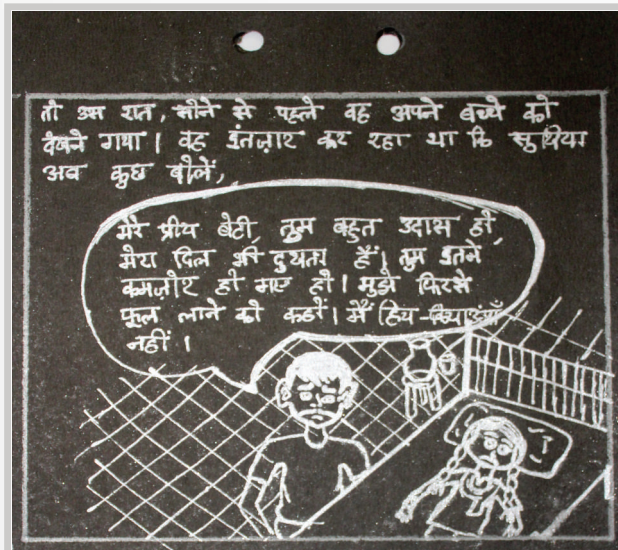 तो उस रात, सोने से पहले वह अपने बच्चे को
देखने गया। वह इंतज़ार कर रहा था कि सुखिया
अब कुछ बोलें,
मेरे प्रीय बेटी, तुम बहुत उदास हो,
मेरा दिल भी दुखता हैं। तुम इतने
कमज़ोर हो गए हो। मुझे फिरसे
फूल लाने को कहों। मैं
नहीं।